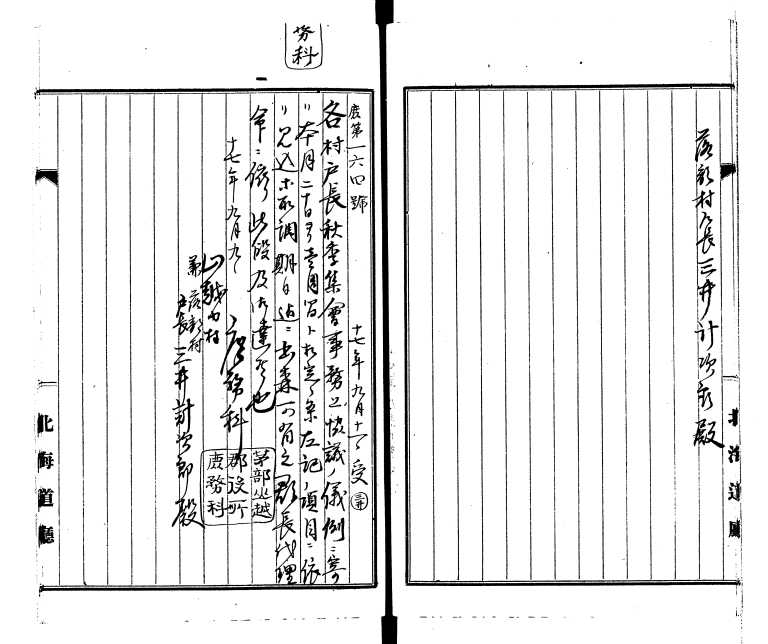 落部村戸長三井計次郎殿
北海道廳
庶第一六四號
十七年九月十一日受
各村戸長秋季集會事務上協議ノ儀例ニ寄
リ本月二十日ヨリ壹週間ト相定候条左記ノ項目ニ依
リ見込書取調期日迄ニ出森可有之郡長代理
命ニ依此段及御達候也
十七年九月九日
庶務科
茅部山越
郡役所
庶務科
山越内村
兼落部村
戸長三井計次郎殿
北海道廳
務科